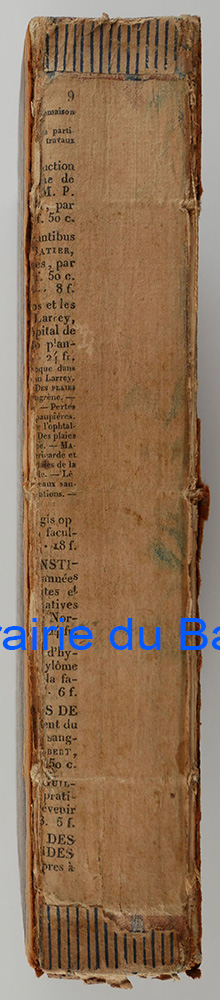 9
ensaison
parti
travaux
uction
ne de
M. P.
, par
f. 50 c.
antibus
BATIER,
es, par
f. 50 c.
8 f.
os et les
LARREY,
ôpital de
p'an-
24 fr.
que dans
au Larrey.
DES PLAIES
ngrène. —
— Pertes
aupières.
e l'ophtal-
Des plaies
pe. — MA-
ricarde et
aies de la
le. — Lé
vaux san-
utions. —
gis op
facul-
18 f.
NSTI-
années
tes et
atives
Nor-
f.
d'hy-
ylôme
la fa-
6 f.
S DE
ent du
sang-
BERT,
50 c.
GUIL-
prati-
évenir
8. 5 f.
DES
IDES
pres à
rairie du Ba